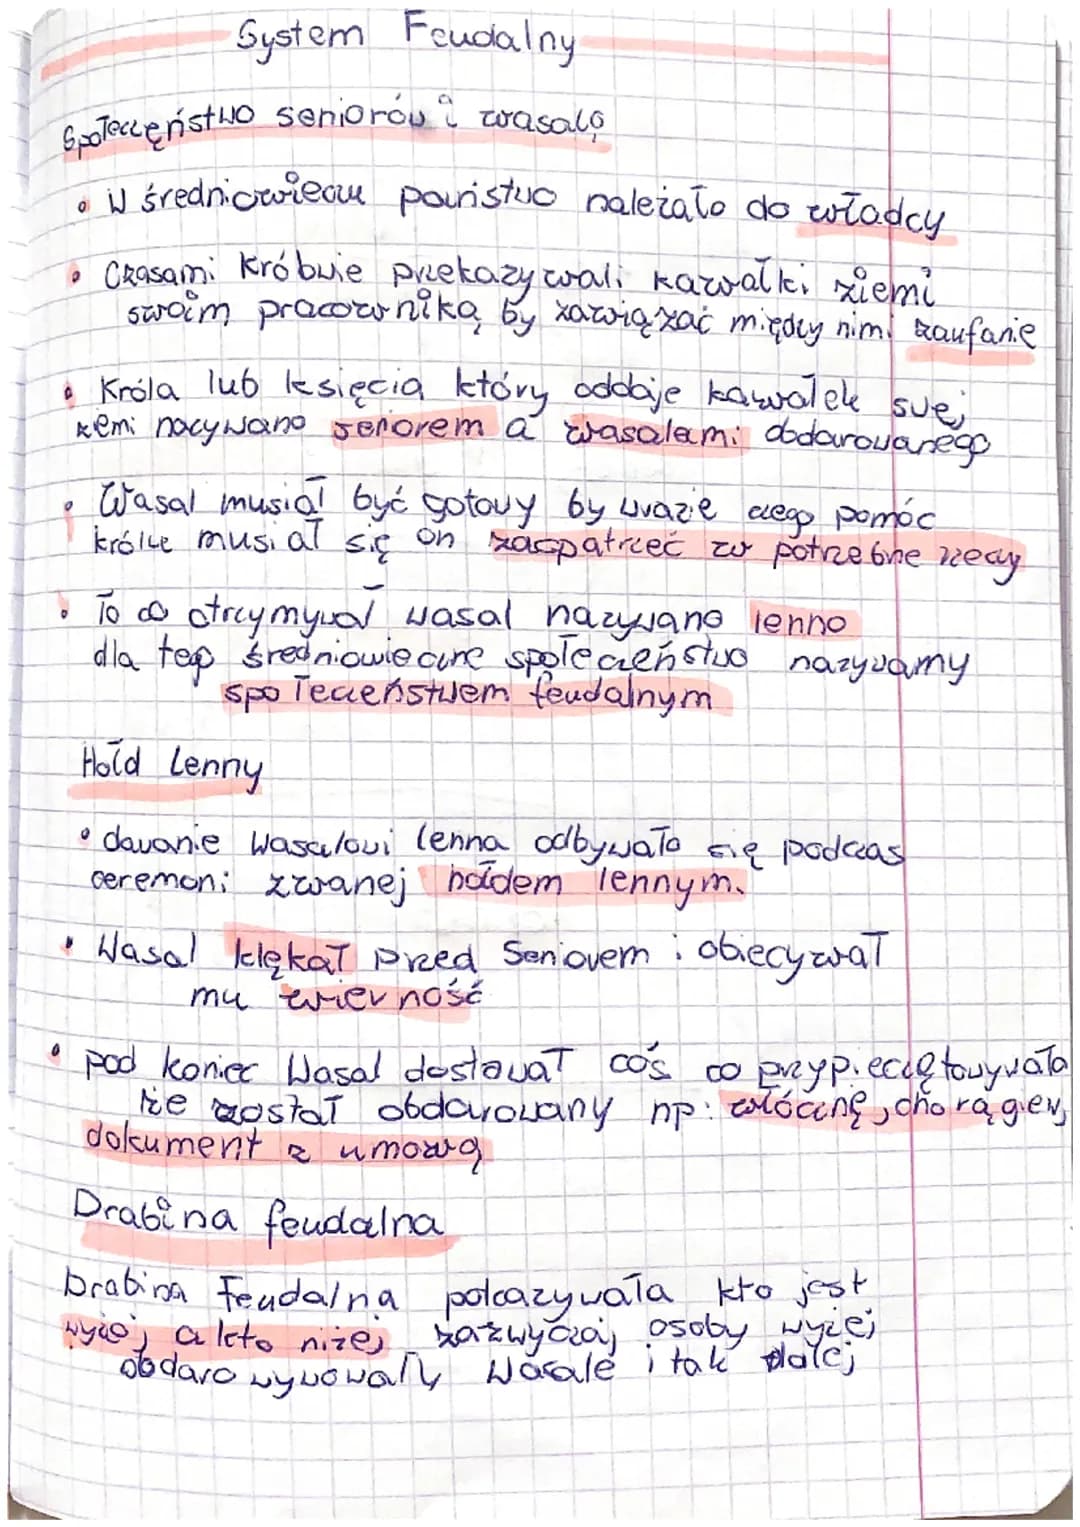 System Feudalny
Społeczeństwo seniorów i wasaló
W średniowieczu państwo należało do władcy
Czasami Królwie przekazywali kawałki ziemi
swoim pracowniką by zawiązać między nimi zaufanie
Króla lub księcia który oddaje kawałek swej
ziemi nazywano seniorem a wasalami obdarowanego
Wasal musiał być gotowy by wrazie czego pomóc
królwe musiał się on zaopatrzeć w potrzebne rzeczy
To co otrzymywał wasal nazywano lenno
dla tego średniowieczne społeczeństwo nazywamy
społeczeństwem feudalnym
Hołd Lenny
dawanie Wasalowi lenna odbywało się podczas
ceremoni zwanej hołdem lennym.
Wasal klękał przed Seniorem i obiecywał
mu wierność
pod koniec Wasal dostawał coś co przypieczętowywała
że został obdarowany np: włócznę, chorągiew,
dokument z umową
Drabina feudalna
Drabina Feudalna pokazywała kto jest
wyżej a kto niżej zazwyczaj osoby wyżej
obdarowywowały Wasale i tak dalej